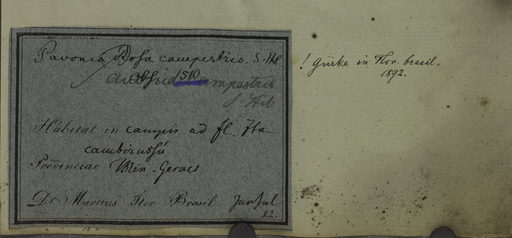 Pavonia Rosa campestris. S. Hil
campestris
S. Hil
1510
Habitat in campis ad fl. Ita
cambirussú
Provinciae Min. Geraes
Dr Martius Iter Brasil. Jun Jul
! Gürke in Flor. brasil.
1892.